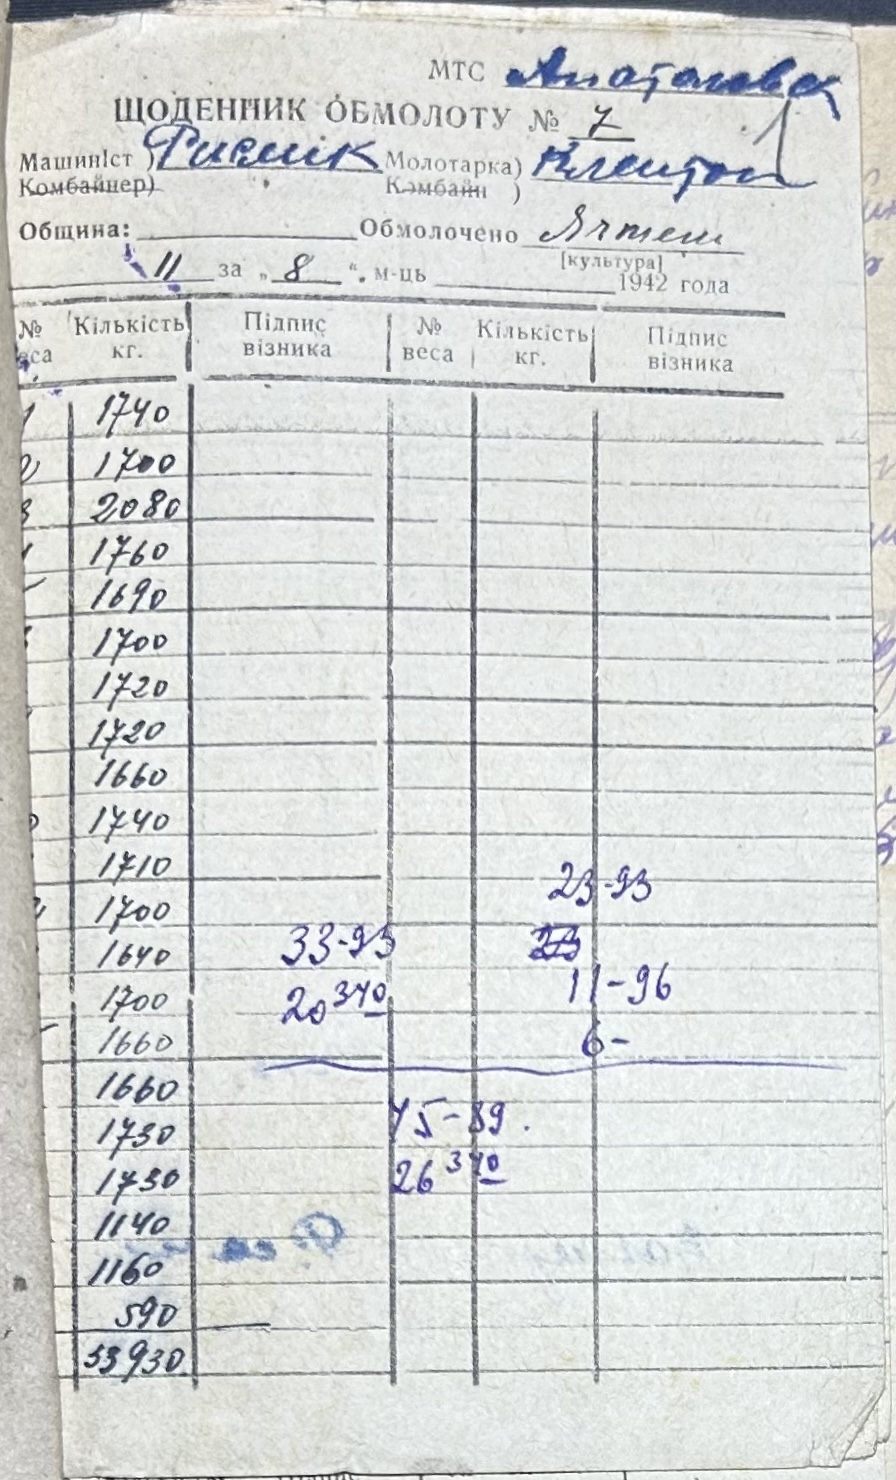 МТС Анатовск
ЩОДЕННИК ОБМОЛОТУ № 7
Машиніст) Молотарка) Клейтон
Комбайнер) Комбайн )
Община: Обмолочено Ячмень
[культура]
11 за „ 8 “. м-ць 1942 года
№ веса Кількість кг. Підпис візника № веса Кількість кг. Підпис візника
1 1740
2 1700
3 2080
1760
1690
1700
1720
1720
1660
1740
1710
23-93
1700
1640 33-93 23
1700 20 340 11-96
1660 6-
1660
1730 75-89.
1730 26 340
1140
1160
590
33930